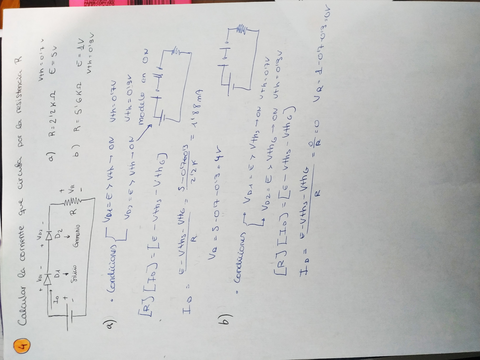 4 Calcular la corriente que circula por la resistencia R
+ VD1 - + VD2 -
ID D1 D2
Silicio Germanio
E R VR
a) R = 2'2 KΩ E = 5V Vth = 0'7V
b) R = 5'6 KΩ E = 1V Vth = 0'3V
a) • Condiciones
VD1 = E > Vth → ON Vth = 0.7V
VD2 = E > Vth → ON Vth = 0'3V
modelo en ON
[R] [ID] = [E - Vths - VthG]
ID = E - Vths - VthG / R = 5 - 0'7 - 0'3 / 2.2K = 1'88 mA
VR = 5 - 0.7 - 0.3 = 4V
b) • Condiciones
VD1 = E > Vths → ON Vth = 0.7V
VD2 = E > VthG → ON Vth = 0.3V
[R] [ID] = [E - Vths - VthG]
ID = E - Vths - VthG / R = 0 / R = 0 VR = 1 - 0.7 - 0.3 = 0V